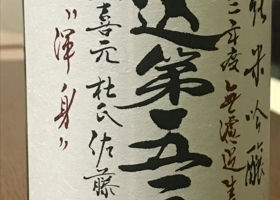 純米吟醸
三年度 無濾過生
第五
喜元 杜氏 佐藤
"渾身"